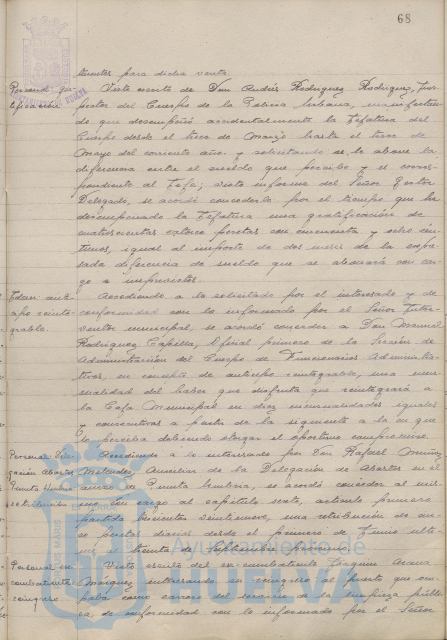 68
tuentes para dicha venta.
Personal gra- Visto escrito de Don Andrés Rodríguez Rodríguez, Ins-
tificación pector del Cuerpo de la Policía Urbana, manifestan-
do que desempeñó accidentalmente la Jefatura del
Cuerpo desde el trece de Marzo hasta el trece de
Mayo del corriente año y solicitando se le abone la
diferencia entre el sueldo que percibe y el corres-
pondiente al Jefe; visto informe del Señor Gestor
Delegado, se acordó concederle por el tiempo que ha
desempeñado la Jefatura una gratificación de
cuatrocientas catorce pesetas con cincuenta y ocho cén-
timos, igual al importe de dos meses de la expre-
sada diferencia de sueldo que se abonará con car-
go a imprevistos.
Idem anti- Accediendo a lo solicitado por el interesado y de
cipo reinte- conformidad con lo informado por el Señor Inter-
grable. ventor municipal, se acordó conceder a Don Manuel
Rodríguez Capilla, Oficial primero de la Sección de
Administración del Cuerpo de Funcionarios Administra-
tivos, en concepto de anticipo reintegrable, una men-
sualidad del haber que disfruta que reintegrará a
la Caja Municipal en diez mensualidades iguales
y consecutivas a partir de la siguiente a la en que
lo perciba debiendo otorgar el oportuno compromiso.
Personal Dele- Accediendo a lo interesado por Don Rafael Muñoz
gación Abastos Auxiliar de la Delegación de Abastos en el
Punta Umbría anexo de Punta Umbría, se acordó conceder al mis-
retribución mo, con cargo al capítulo sexto, artículo primero
partida veintinueve, una retribución de
pesetas diarias desde el primero de Junio últi-
mo al treinta de Septiembre próximo.
Personal ex- Visto escrito del ex-combatiente Joaquín
combatiente interesando su reingreso al puesto que ocu-
reingreso paba como carrero del servicio de la limpieza públi-
ca, de conformidad con lo informado por el Señor
Ayuntamiento de
HUELVA